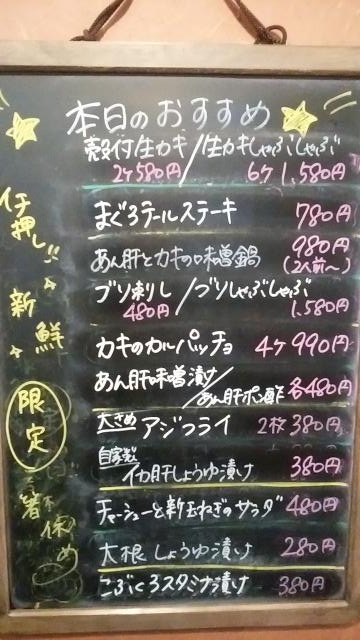 本日のおすすめ
殻付生カキ/生カキしゃぶしゃぶ
2ケ580円 6ケ1,580円
まぐろテールステーキ 780円
あん肝とカキの味噌鍋 980円(2人前〜)
ブリ刺し/ブリしゃぶしゃぶ
480円 1,580円
カキのカルパッチョ 4ケ990円
あん肝味噌漬け/あん肝ポン酢 各480円
大きめアジフライ 2枚380円
自家製
イカ肝しょうゆ漬け 380円
チャーシューと新玉ねぎのサラダ 480円
大根しょうゆ漬け 280円
こぶくろスタミナ漬け 380円
イチ押し!!
新鮮
限定
箸休め